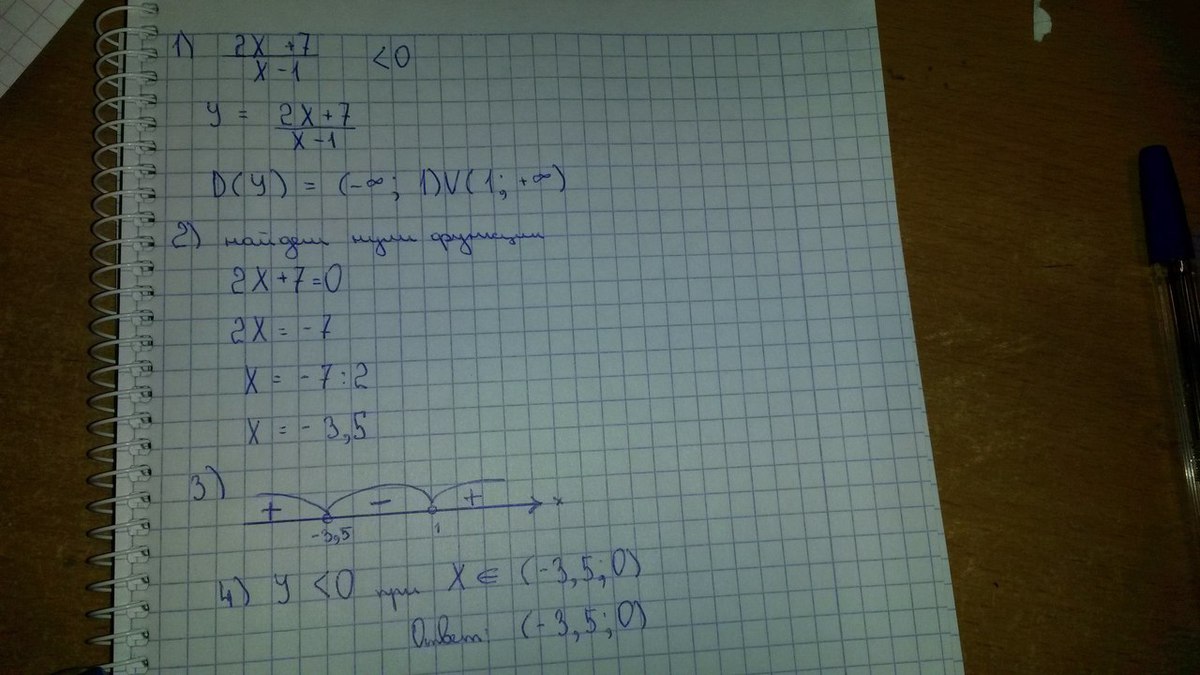 1) (2x + 7)/(x - 1) < 0
y = (2x + 7)/(x - 1)
D(y) = (-∞; 1)V(1; +∞)
2) найдем нули функции
2x + 7 = 0
2x = -7
x = -7 : 2
x = -3,5
3) + - + x
-3,5 1
4) y < 0 при x ∈ (-3,5; 0)
Ответ: (-3,5; 0)